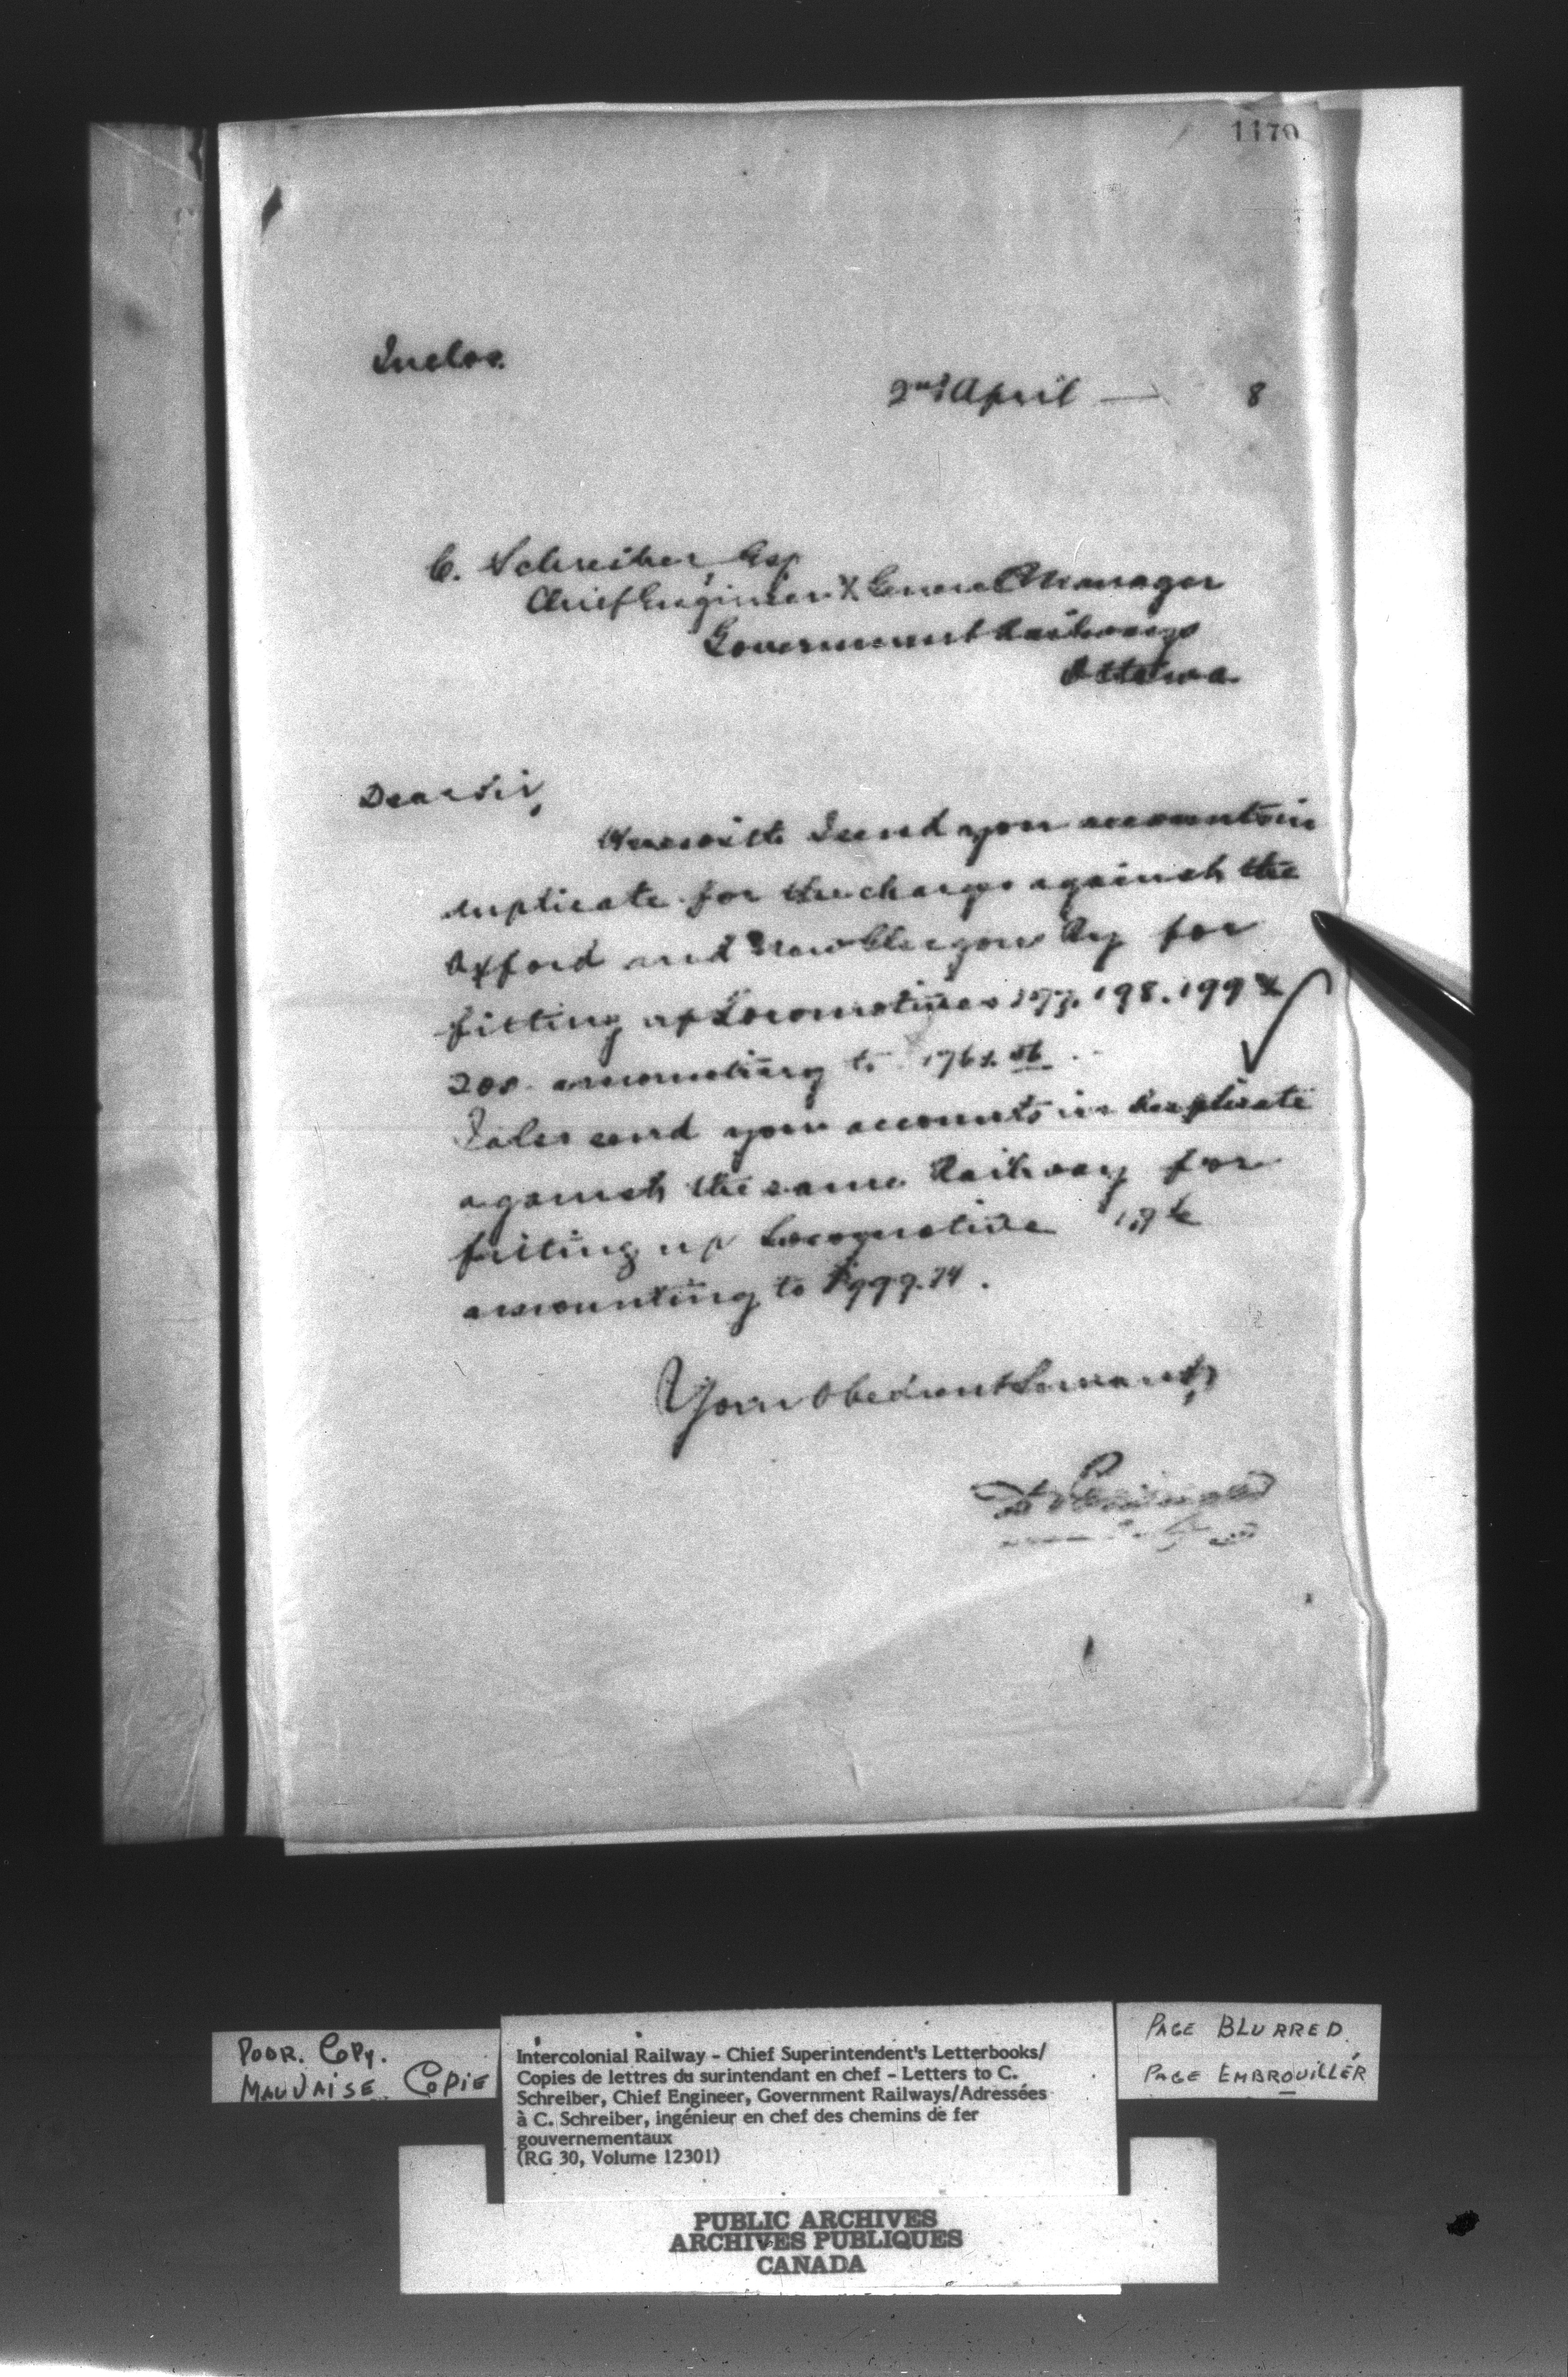 1170
Inclos.
2nd April — 8
C. Schreiber, Esq
Chief Engineer & General Manager
Government Railways
Ottawa
Dear Sir,
Herewith I send you accounts in
duplicate for the charges against the
Oxford and New Glasgow Ry for
fitting up Locomotives 198. 199 &
200. amounting to
I also send you accounts in duplicate
against the same Railway for
fitting up Locomotive
amounting to $999.74.
Your Obedient Servant,
POOR. COPY.
MAUVAISE COPIE
Intercolonial Railway - Chief Superintendent's Letterbooks/
Copies de lettres du surintendant en chef - Letters to C.
Schreiber, Chief Engineer, Government Railways/Adressées
à C. Schreiber, ingénieur en chef des chemins de fer
gouvernementaux
(RG 30, Volume 12301)
PAGE BLURRED.
PAGE EMBROUILLÉR
PUBLIC ARCHIVES
ARCHIVES PUBLIQUES
CANADA